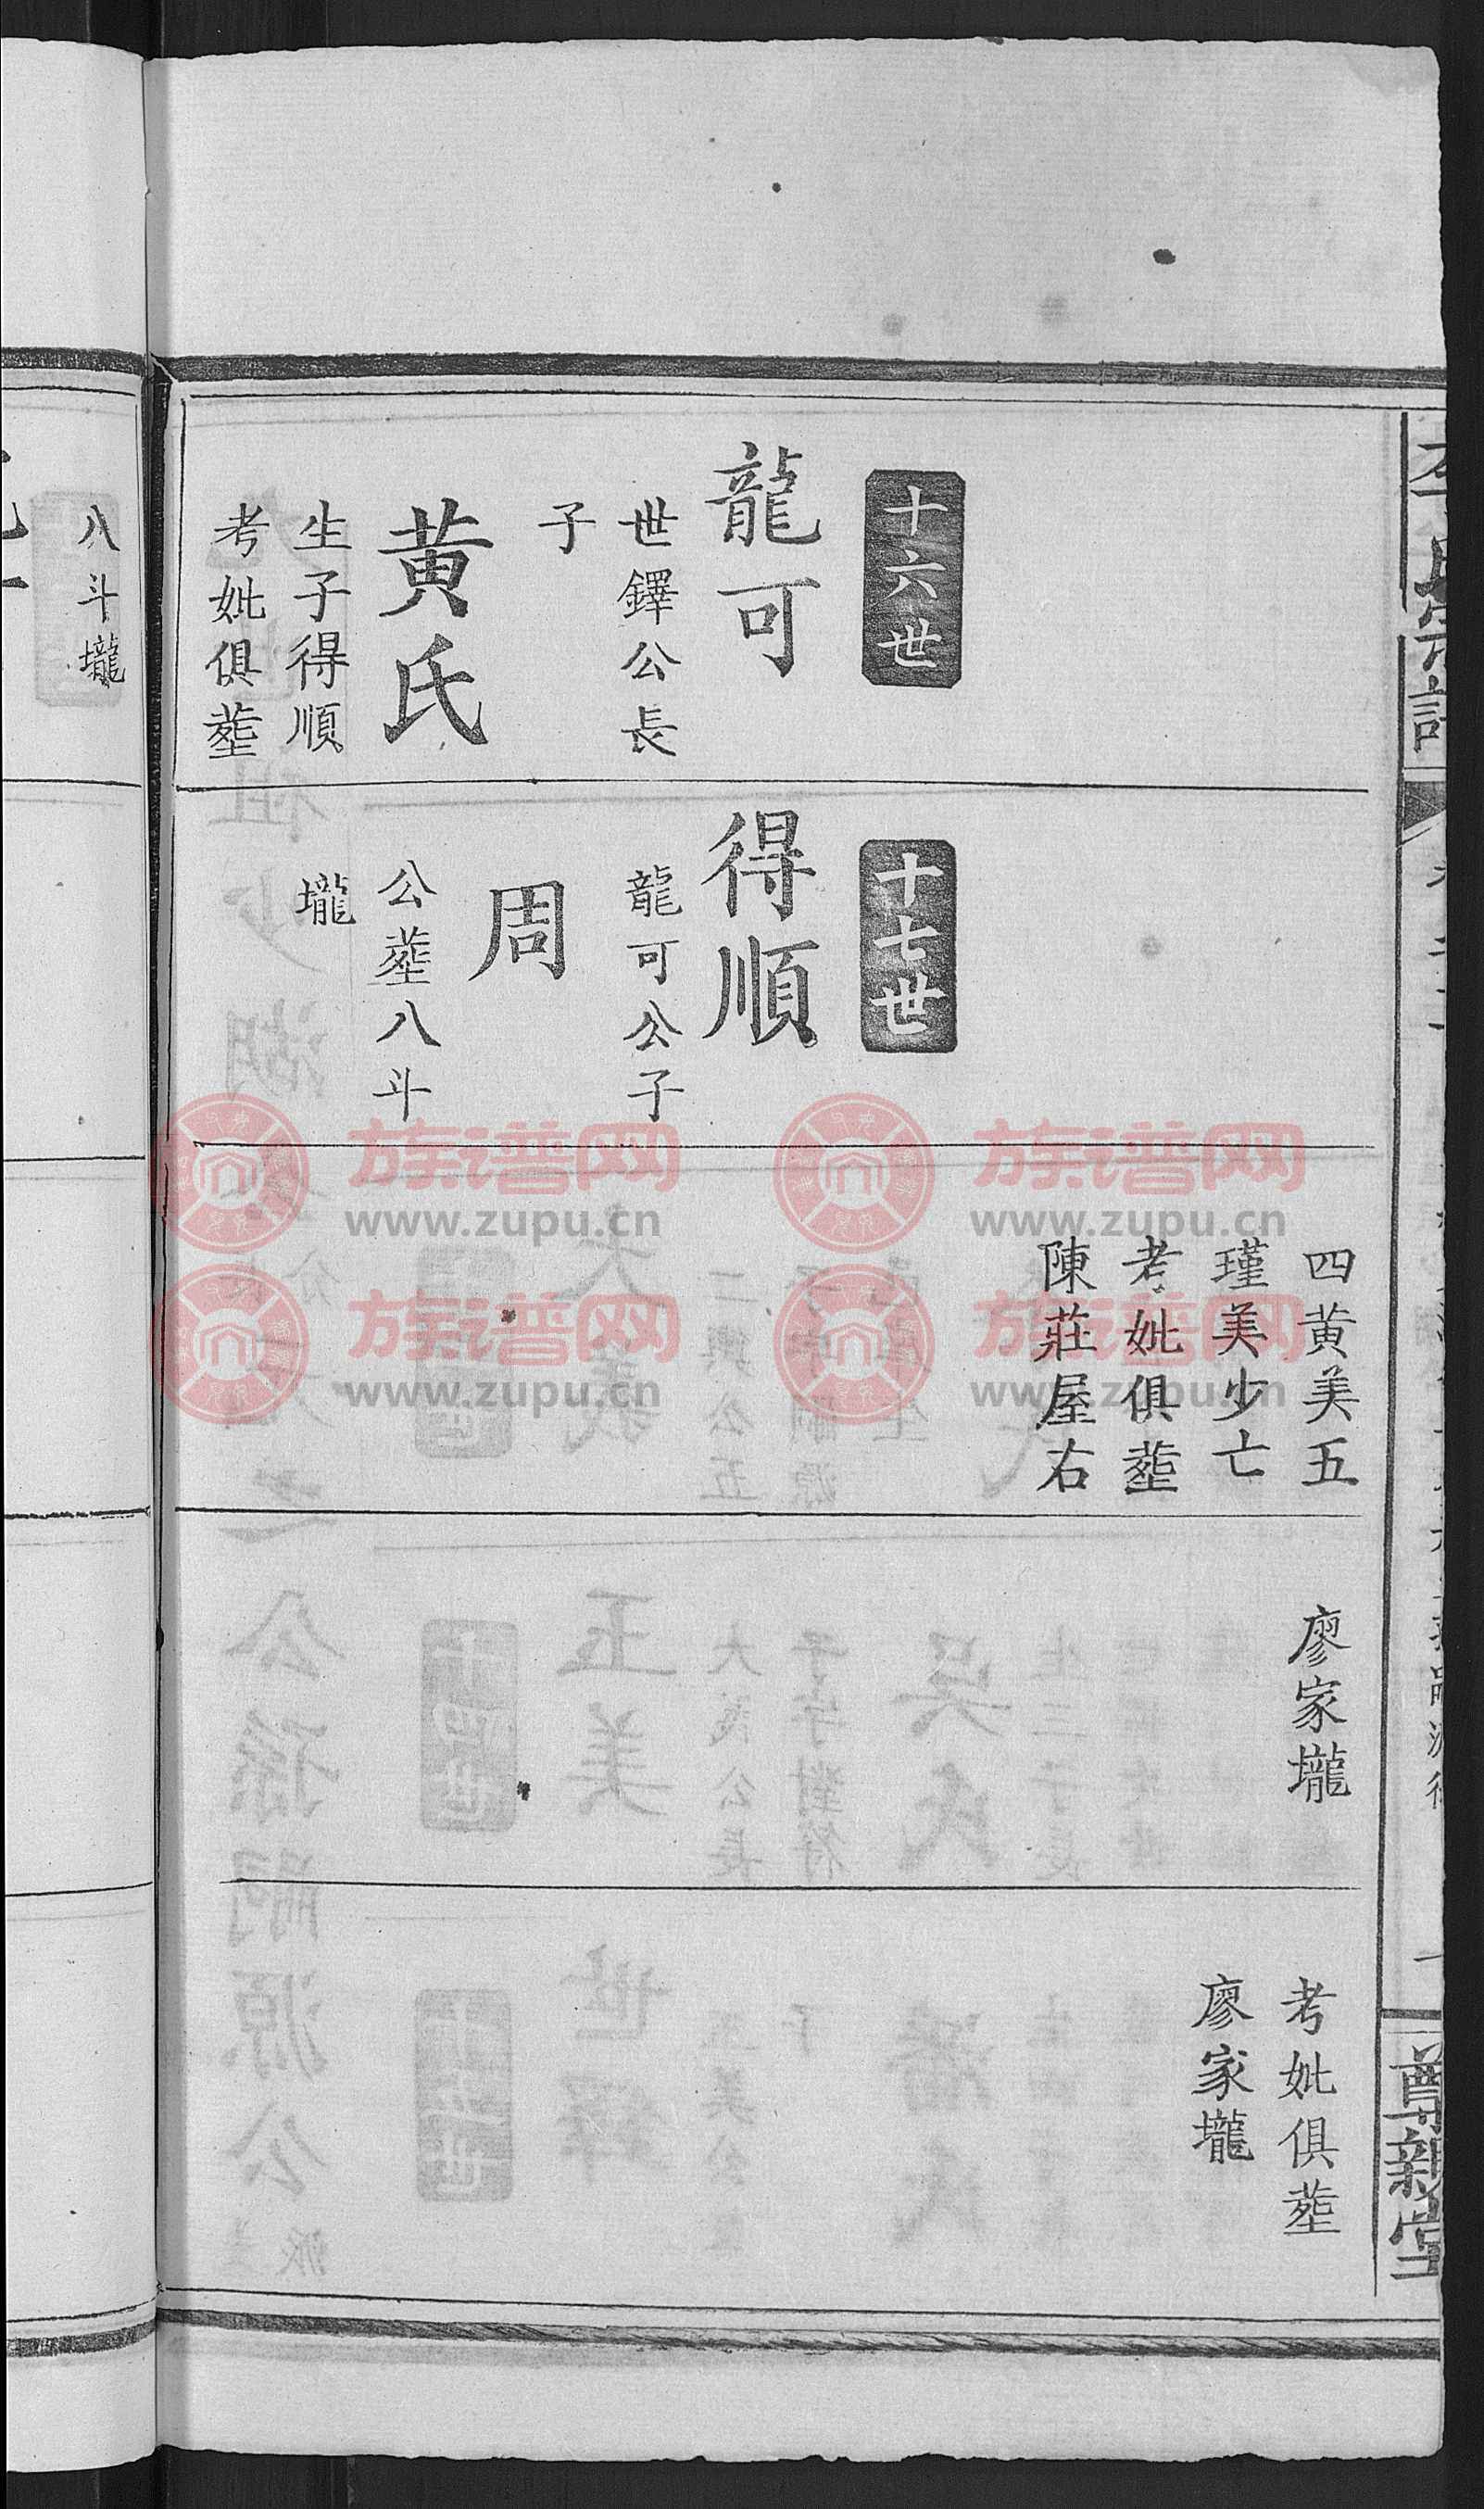 十六世
龍可
世鐸公長
子
黄氏
生子得順
考妣俱塟
十七世
得順
龍可公子
周
公塟八斗
壠
四黄美五
瑾美少亡
考妣俱塟
陳莊屋右
廖家壠
考妣俱塟
廖家壠
尊親堂
八斗壠
族谱网
www.zupu.cn
族谱网
www.zupu.cn
族谱网
www.zupu.cn
族谱网
www.zupu.cn